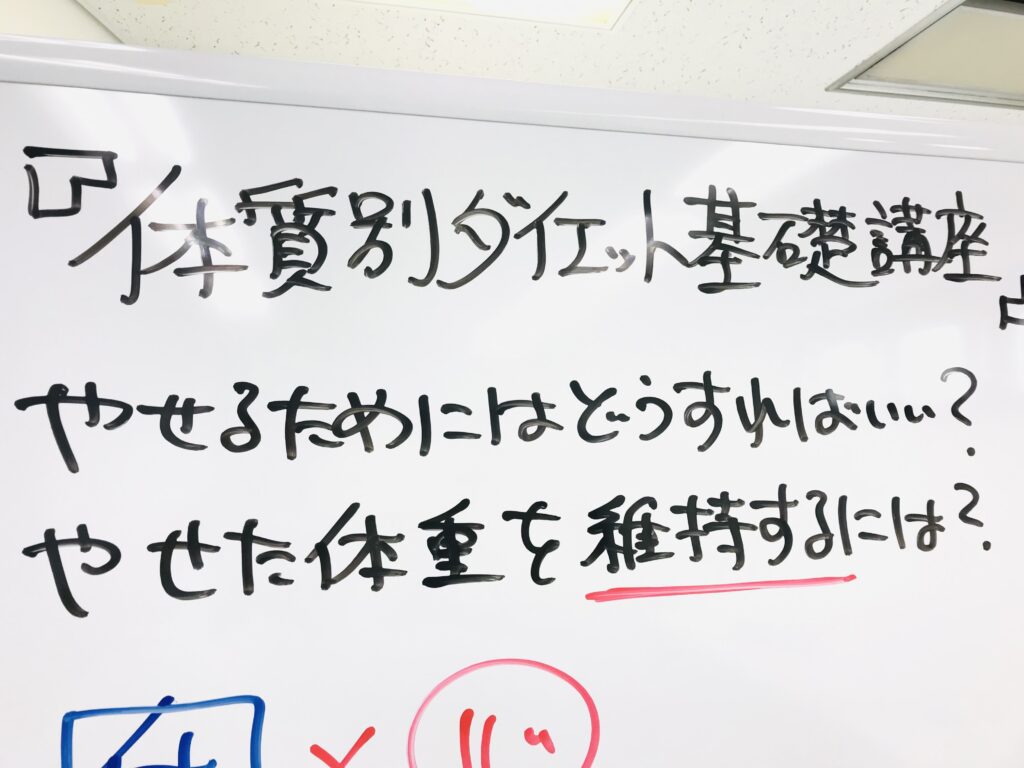 『体質別ダイエット基礎講座』
やせるためにはどうすればいい?
やせた体重を維持するには?